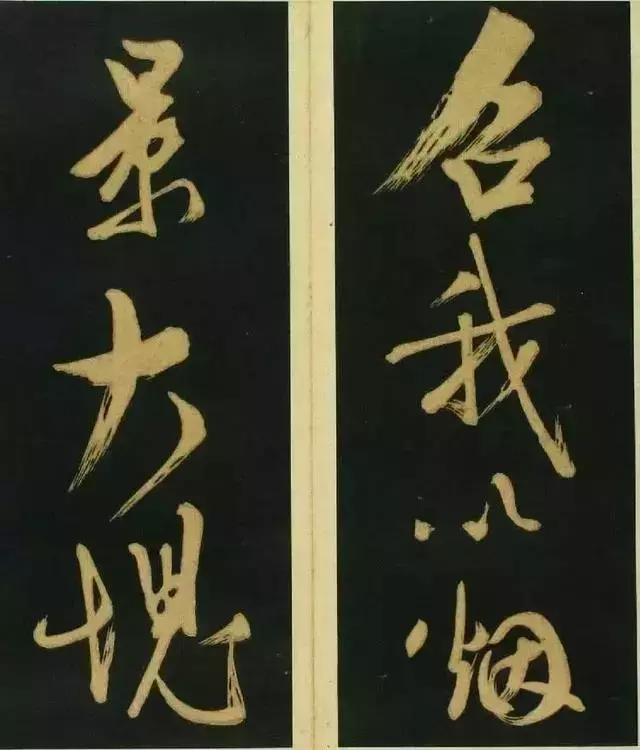 召我以烟
景大塊